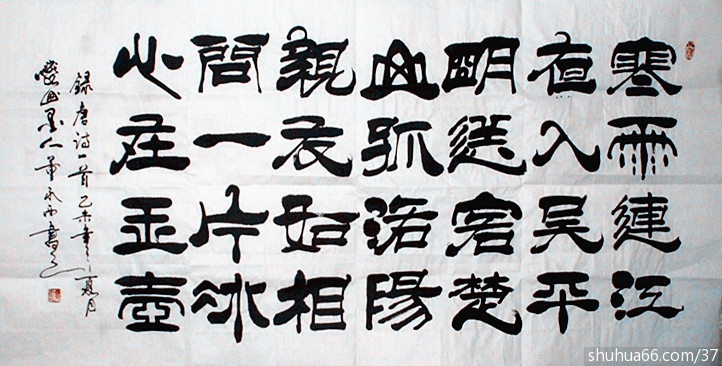 寒雨連江
夜入吴平
明送客楚
山孤洛陽
親友如相
問一片冰
心在玉壺
録唐诗一首 未年 夏月
山墨人 書
shuhua66.com/37